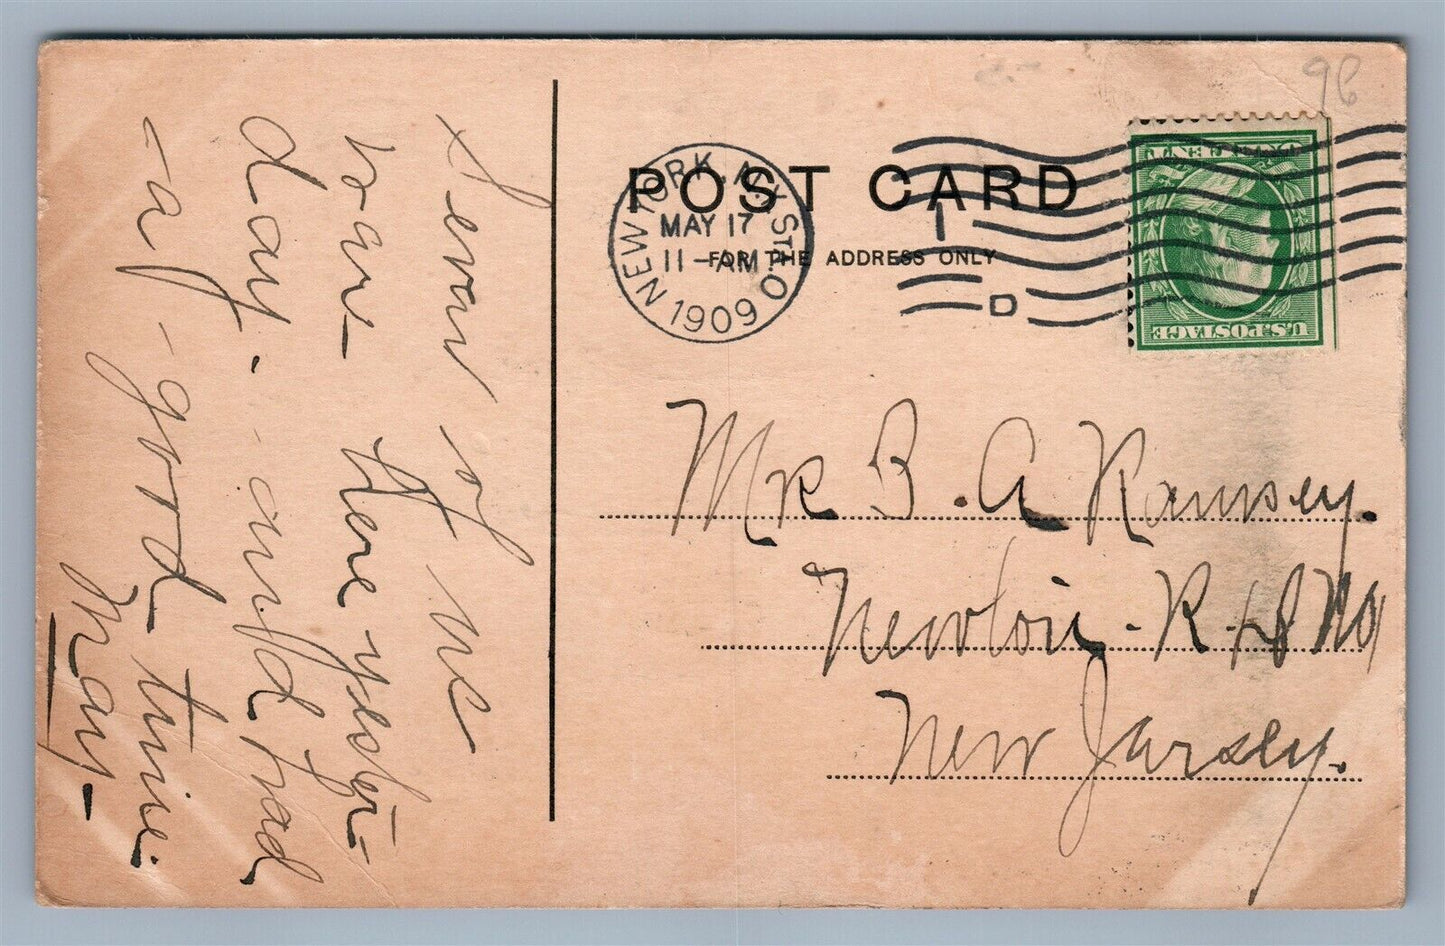 Seven of us
was here yester-
day - and had
-a-good time.
May-
POST CARD
FOR THE ADDRESS ONLY
NEW YORK, N.Y. STA. O
MAY 17
11-AM
1909
1
D
ONE CENT
U.S. POSTAGE
96
Mr B. A Ramsey.
Newton - R
New Jersey.